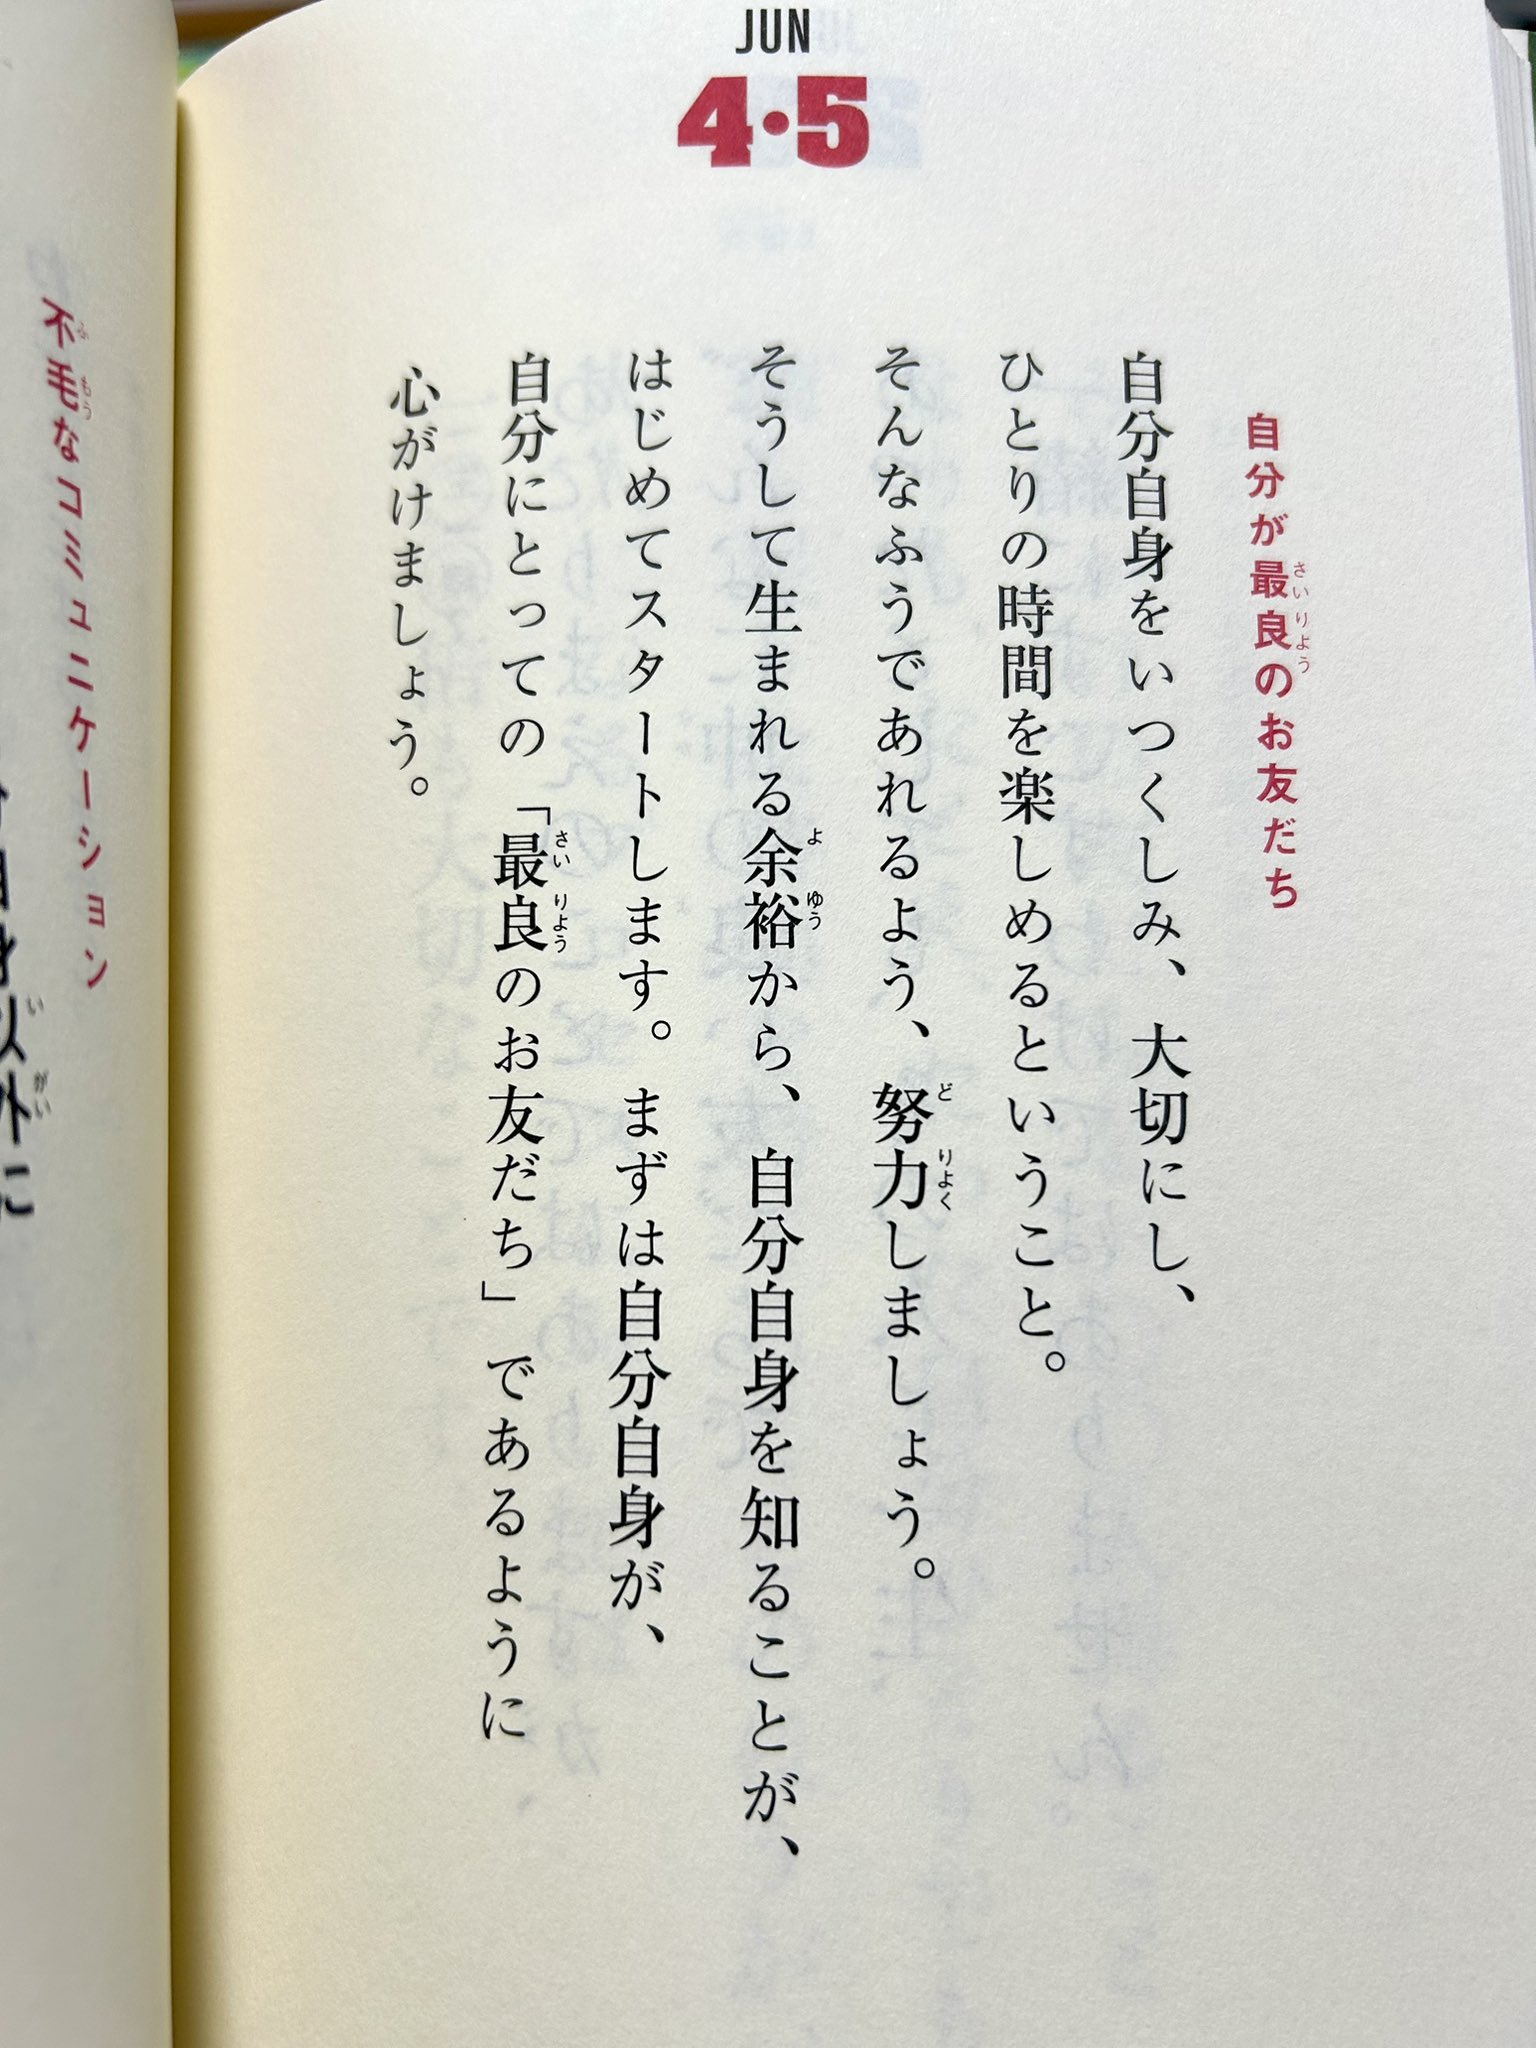 JUN
4・5
自分が最良のお友だち
自分自身をいつくしみ、大切にし、
ひとりの時間を楽しめるということ。
そんなふうであれるよう、努力しましょう。
そうして生まれる余裕から、自分自身を知ることが、
はじめてスタートします。まずは自分自身が、
自分にとっての「最良のお友だち」であるように
心がけましょう。
不毛なコミュニケーション
自身以外に